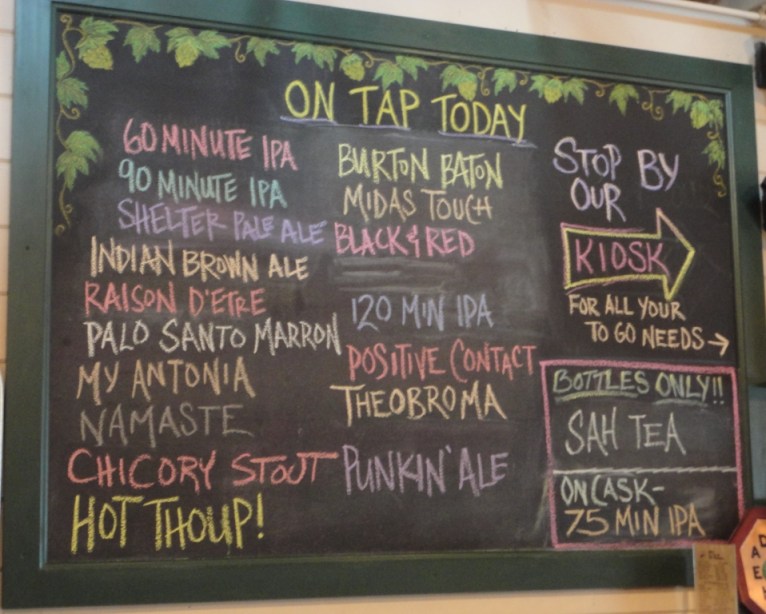 ON TAP TODAY
60 MINUTE IPA
90 MINUTE IPA
SHELTER PALE ALE
INDIAN BROWN ALE
RAISON D'ETRE
PALO SANTO MARRON
MY ANTONIA
NAMASTE
CHICORY STOUT
HOT THOUP!
BURTON BATON
MIDAS TOUCH
BLACK & RED
120 MIN IPA
POSITIVE CONTACT
THEOBROMA
PUNKIN' ALE
STOP BY
OUR
KIOSK
FOR ALL YOUR
TO GO NEEDS →
BOTTLES ONLY!!
SAH TEA
ON CASK-
75 MIN IPA